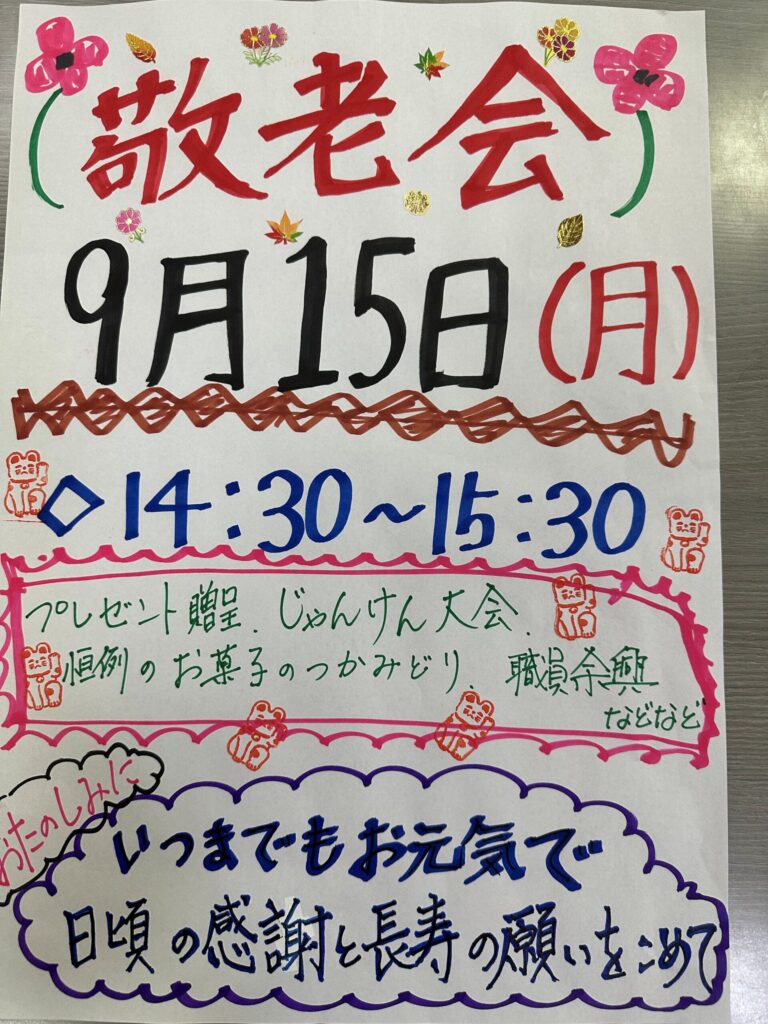 敬老会
9月15日(月)
◇14:30～15:30
プレゼント贈呈、じゃんけん大会、
恒例のお菓子のつかみどり、職員余興
などなど
おたのしみに
いつまでもお元気で
日頃の感謝と長寿の願いをこめて